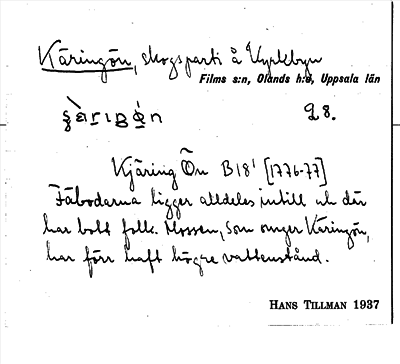 Käringön, skogsparti å Kyrkbyn
Films s:n, Olands h:d, Uppsala län
28.
Kjäring Ön B18¹ [1776-77]
Fäbodarna ligger alldeles intill och där
har bott folk. Mossen, som omger Käringön,
har förr haft högre vattenstånd.
HANS TILLMAN 1937